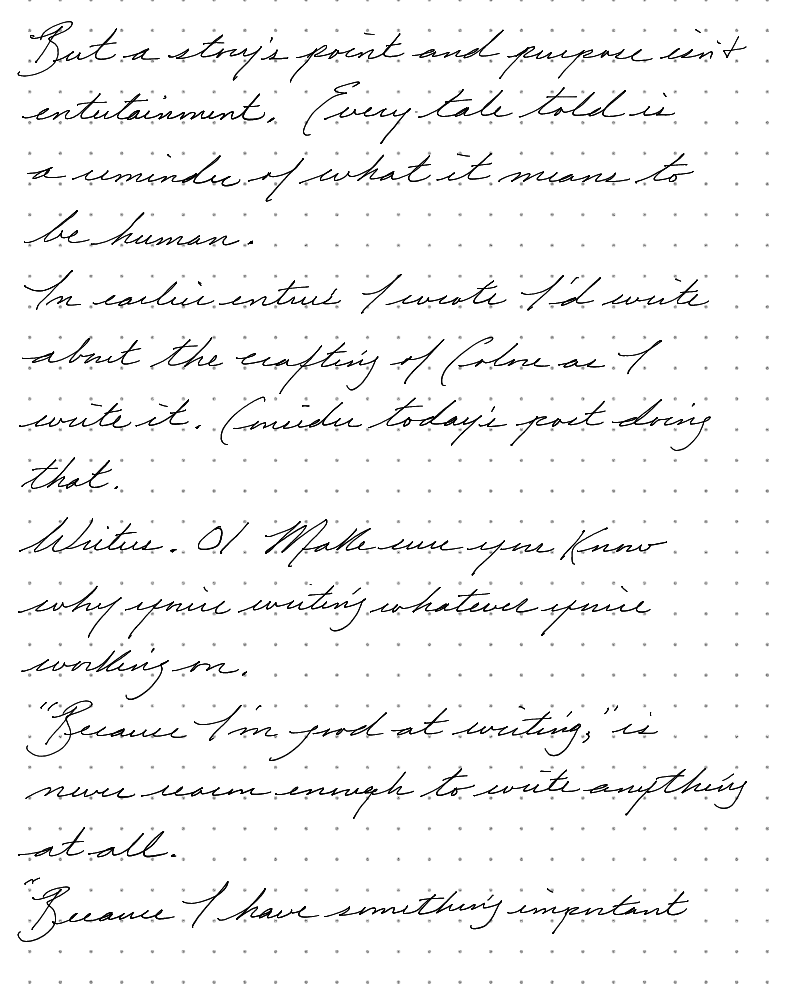 But a story's point and purpose isn't
entertainment. Every tale told is
a reminder of what it means to
be human.
In earlier entries I wrote I'd write
about the crafting of as I
write it. Consider today's post doing
that.
Writer. 01 Make sure you know
why you're writing whatever you're
working on.
"Because I'm good at writing," is
never reason enough to write anything
at all.
"Because I have something important